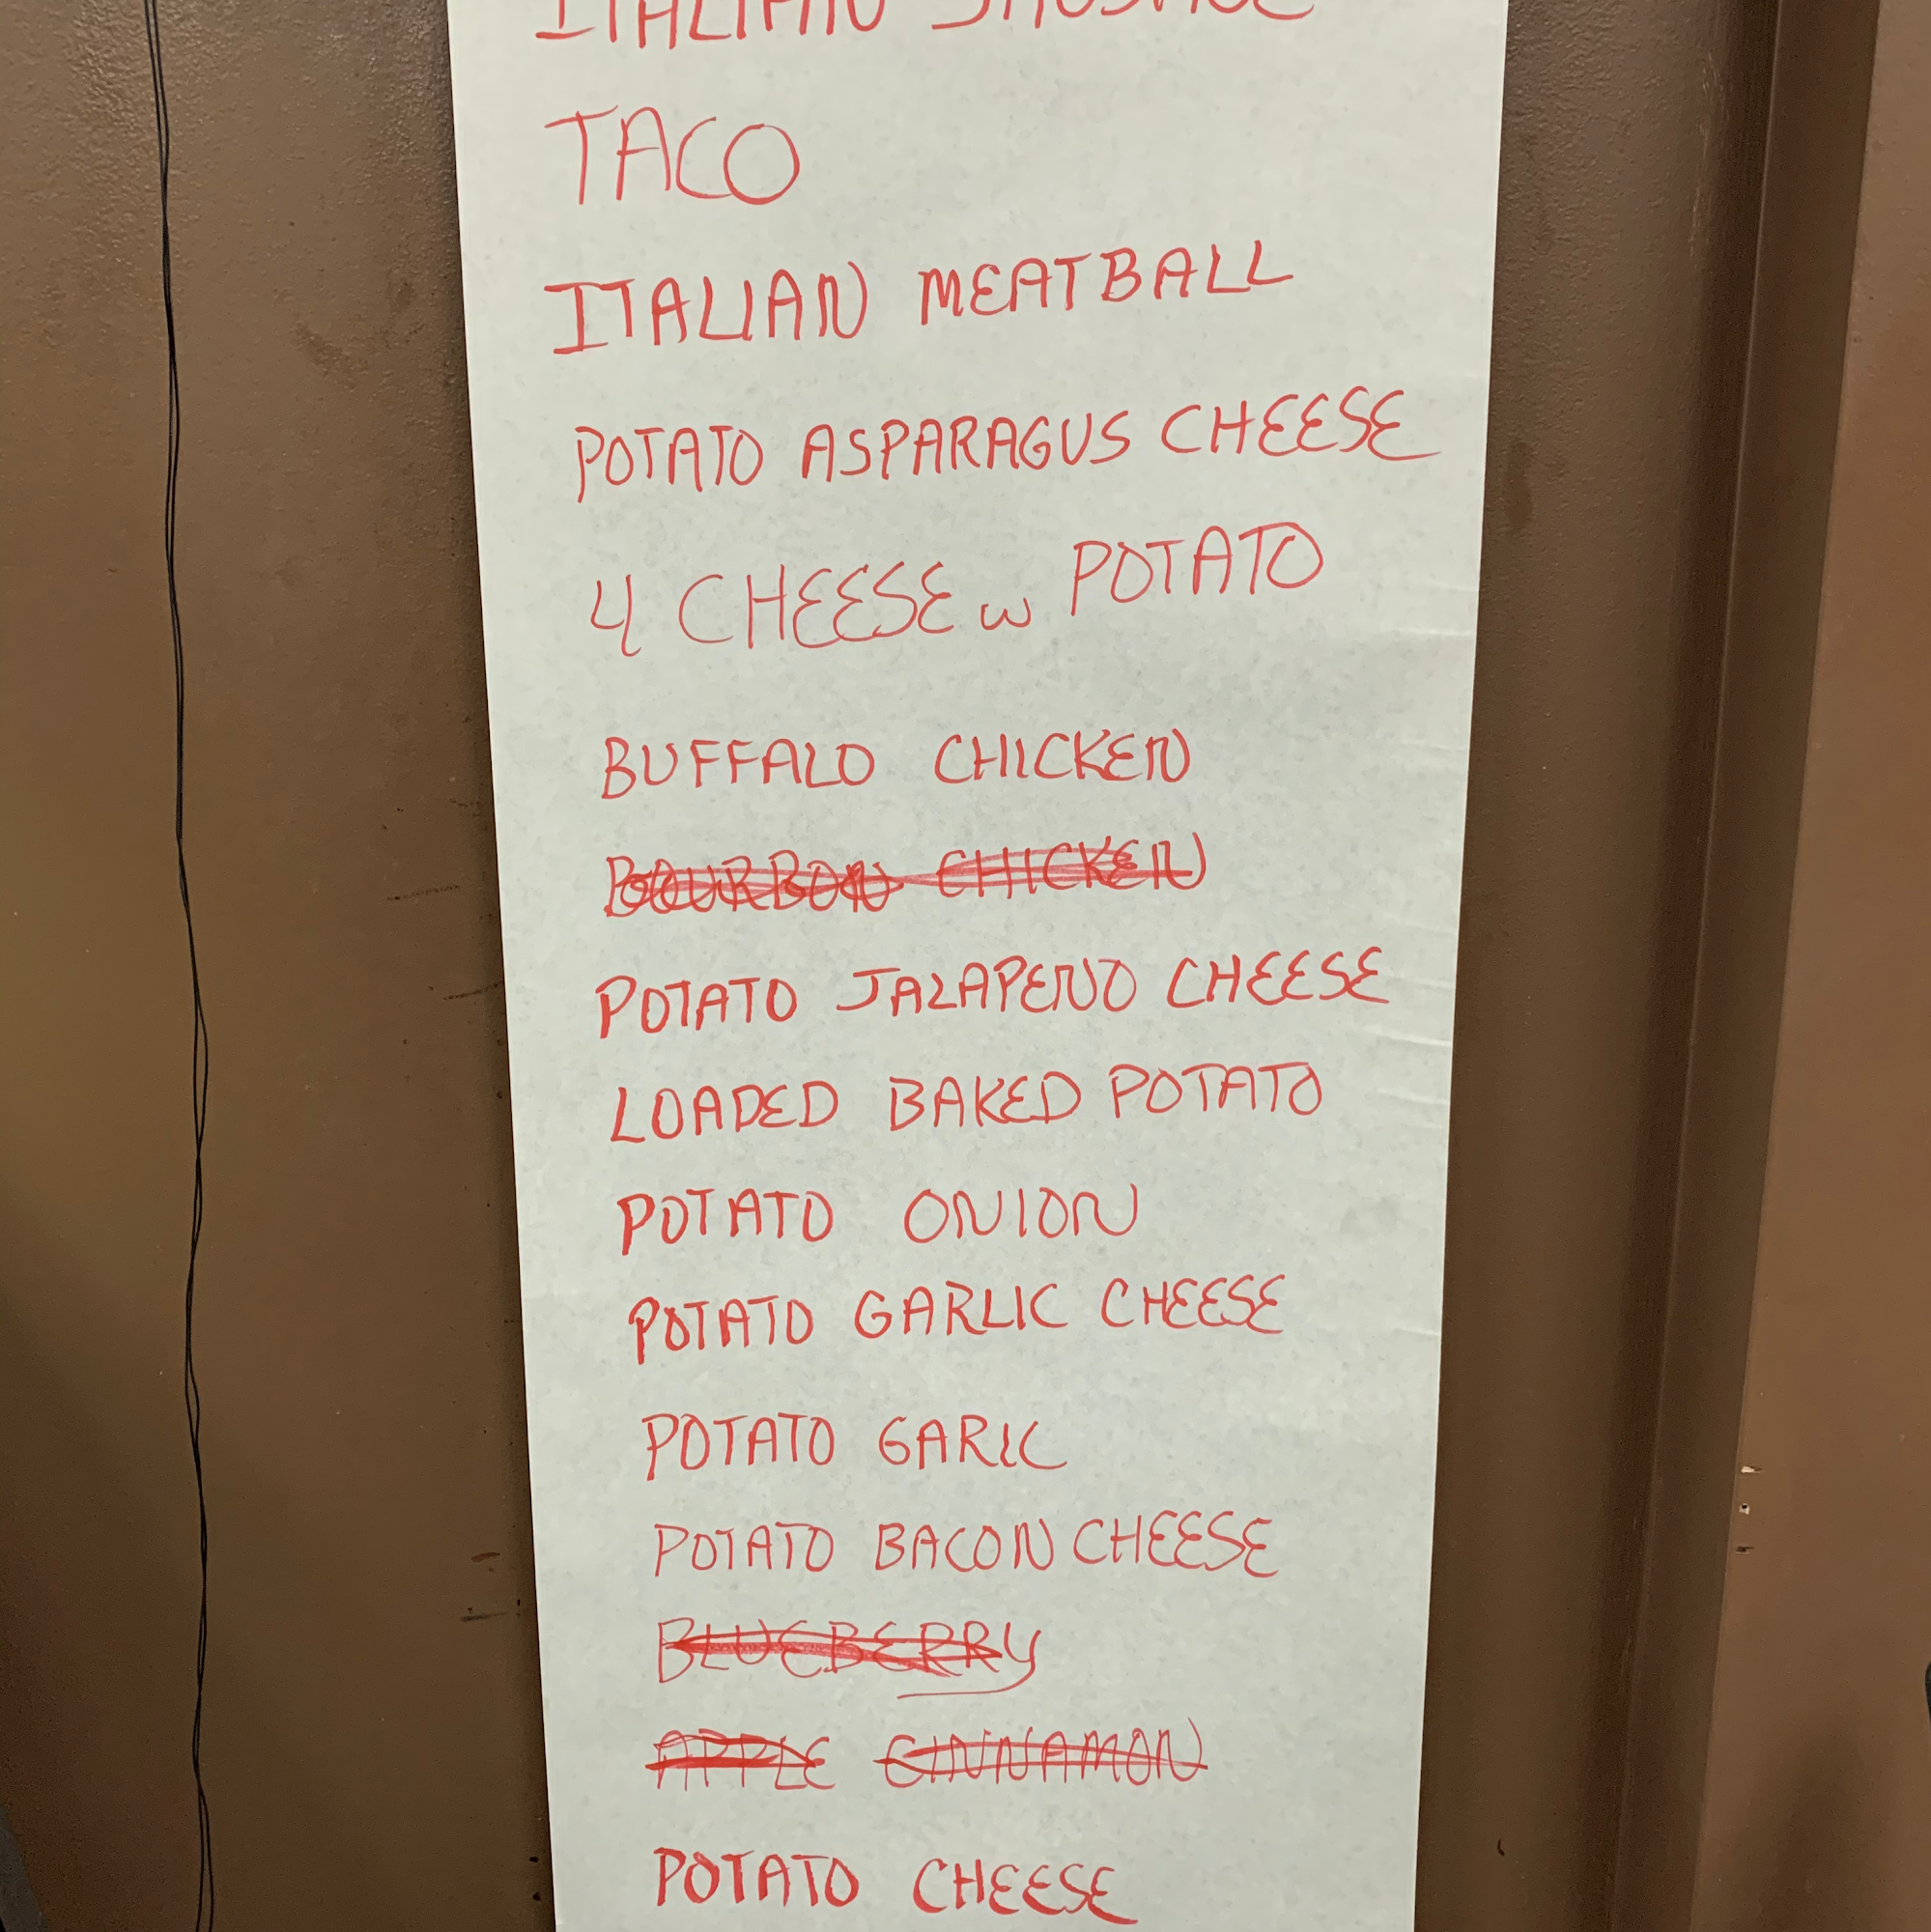 ITALIAN SAUSAGE
TACO
ITALIAN MEATBALL
POTATO ASPARAGUS CHEESE
4 CHEESE w POTATO
BUFFALO CHICKEN
BOURBON CHICKEN
POTATO JALAPENO CHEESE
LOADED BAKED POTATO
POTATO ONION
POTATO GARLIC CHEESE
POTATO GARLC
POTATO BACON CHEESE
BLUEBERRY
APPLE CINNAMON
POTATO CHEESE